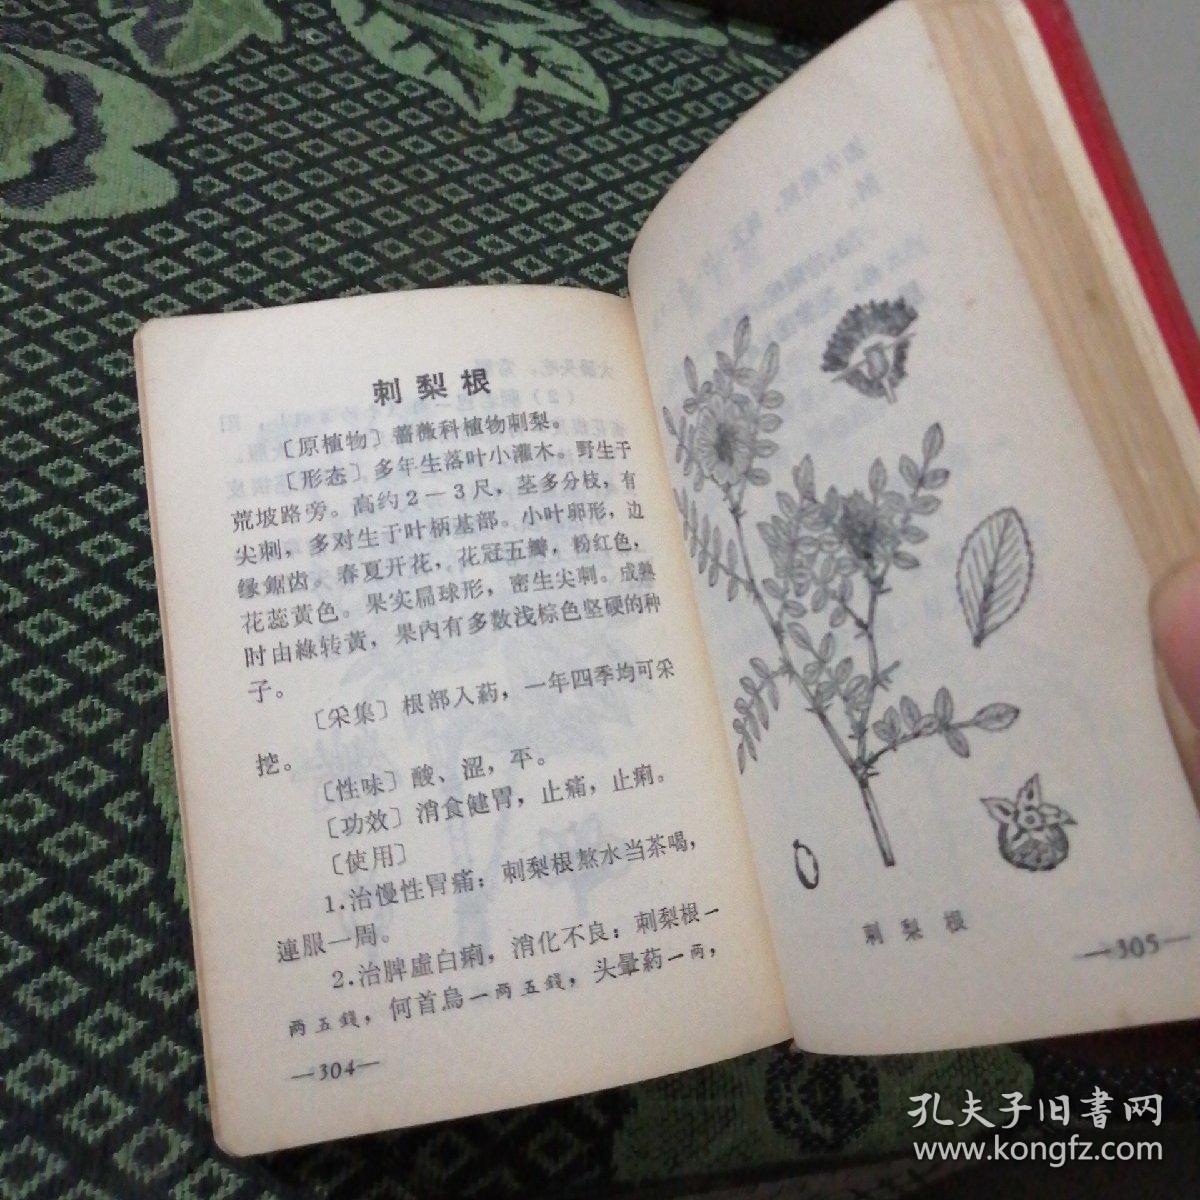 刺梨根
〔原植物〕蔷薇科植物刺梨。
〔形态〕多年生落叶小灌木。野生于
荒坡路旁。高约2—3尺，茎多分枝，有
尖刺，多对生于叶柄基部。小叶卵形，边
缘鋸齿。春夏开花，花冠五瓣，粉红色，
花蕊黃色。果实扁球形，密生尖刺。成熟
时由綠转黃，果內有多数浅棕色坚硬的种
子。
〔采集〕根部入葯，一年四季均可采
挖。
〔性味〕酸、涩，平。
〔功效〕消食健胃，止痛，止痢。
〔使用〕
1.治慢性胃痛：刺梨根熬水当茶喝，
連服一周。
2.治脾虛白痢，消化不良：刺梨根一
两五錢，何首烏一两五錢，头暈葯一两，
—304—
刺梨根
—305—
孔夫子旧書网
www.kongfz.com